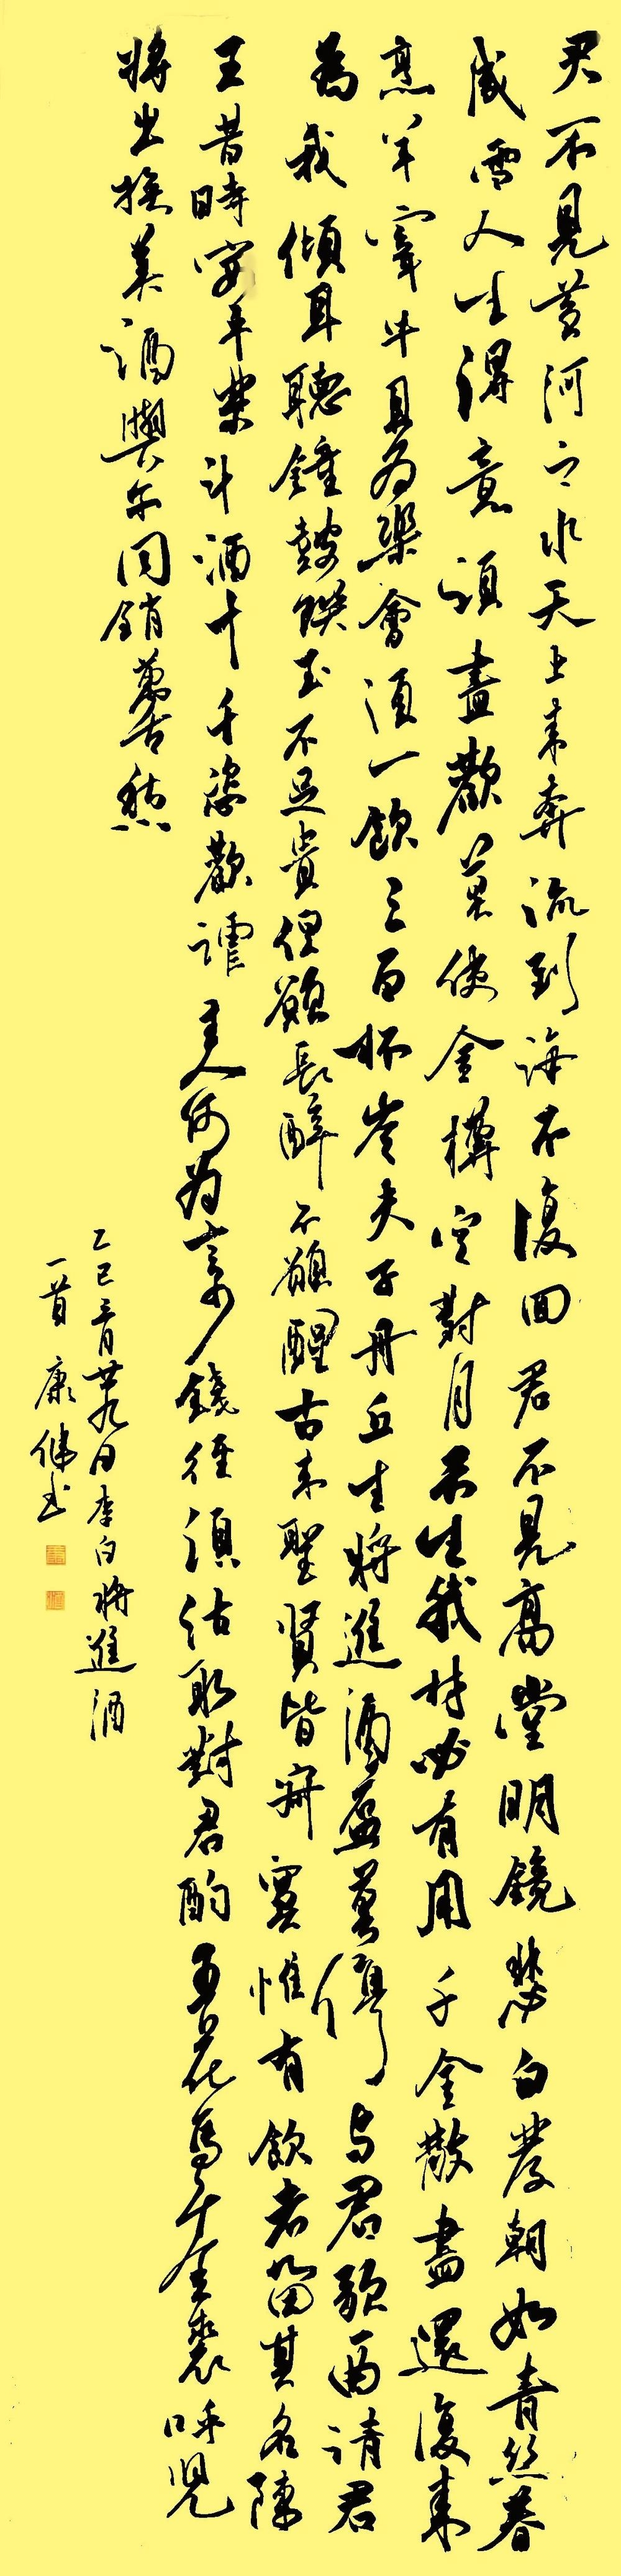 君不見黃河之水天上来奔流到海不復回君不見高堂明鏡悲白髮朝如青絲暮
成雪人生得意須盡歡莫使金樽空對月天生我材必有用千金散盡還復来
烹羊宰牛且为樂會須一飲三百杯岑夫子丹丘生將進酒盃莫停与君歌一曲請君
為我傾耳聽鍾鼓饌玉不足貴但願長醉不願醒古来聖賢皆寂寞惟有飲者留其名陳
王昔時宴平樂斗酒十千恣歡謔主人何为言少錢徑須沽取對君酌五花馬千金裘呼兒
將出換美酒與尔同銷萬古愁
乙巳三月廿九日李白將進酒
一首 康偉书